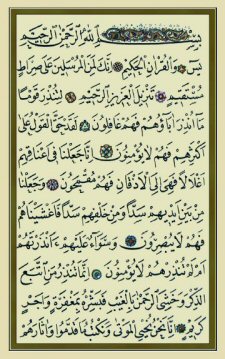 بِسْمِ اللَّهِ الرَّحْمَٰنِ الرَّحِيمِ
يسٓ وَالْقُرْآنِ الْحَكِيمِ إِنَّكَ لَمِنَ الْمُرْسَلِينَ عَلَىٰ صِرَاطٍ
مُسْتَقِيمٍ تَنْزِيلَ الْعَزِيزِ الرَّحِيمِ لِتُنْذِرَ قَوْمًا
مَا أُنْذِرَ آبَاؤُهُمْ فَهُمْ غَافِلُونَ لَقَدْ حَقَّ الْقَوْلُ عَلَىٰ
أَكْثَرِهِمْ فَهُمْ لَا يُؤْمِنُونَ إِنَّا جَعَلْنَا فِي أَعْنَاقِهِمْ
أَغْلَالًا فَهِيَ إِلَى الْأَذْقَانِ فَهُمْ مُقْمَحُونَ وَجَعَلْنَا
مِنْ بَيْنِ أَيْدِيهِمْ سَدًّا وَمِنْ خَلْفِهِمْ سَدًّا فَأَغْشَيْنَاهُمْ
فَهُمْ لَا يُبْصِرُونَ وَسَوَاءٌ عَلَيْهِمْ ءَأَنْذَرْتَهُمْ
أَمْ لَمْ تُنْذِرْهُمْ لَا يُؤْمِنُونَ إِنَّمَا تُنْذِرُ مَنِ اتَّبَعَ
الذِّكْرَ وَخَشِيَ الرَّحْمَٰنَ بِالْغَيْبِ فَبَشِّرْهُ بِمَغْفِرَةٍ وَأَجْرٍ
كَرِيمٍ إِنَّا نَحْنُ نُحْيِي الْمَوْتَىٰ وَنَكْتُبُ مَا قَدَّمُوا وَآثَارَهُمْ